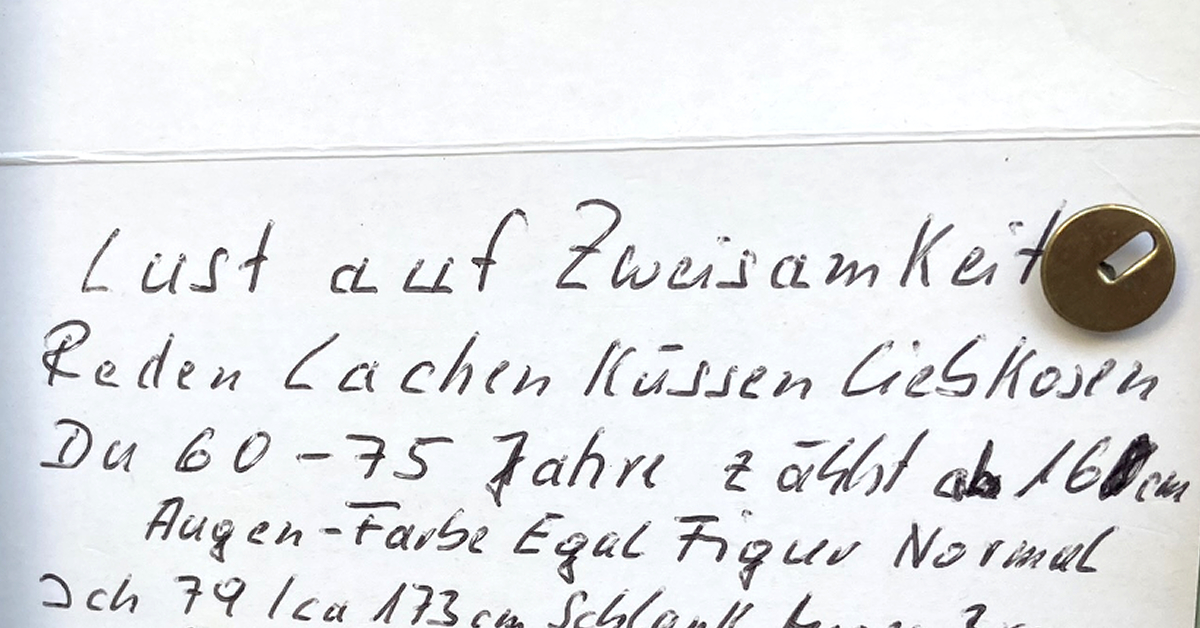 Lust auf Zweisamkeit
Reden Lachen Küssen Liebkosen
Du 60-75 Jahre zählst ab 160cm
Augen-Farbe Egal Figur Normal
Ich 79 / ca 173cm Schlank